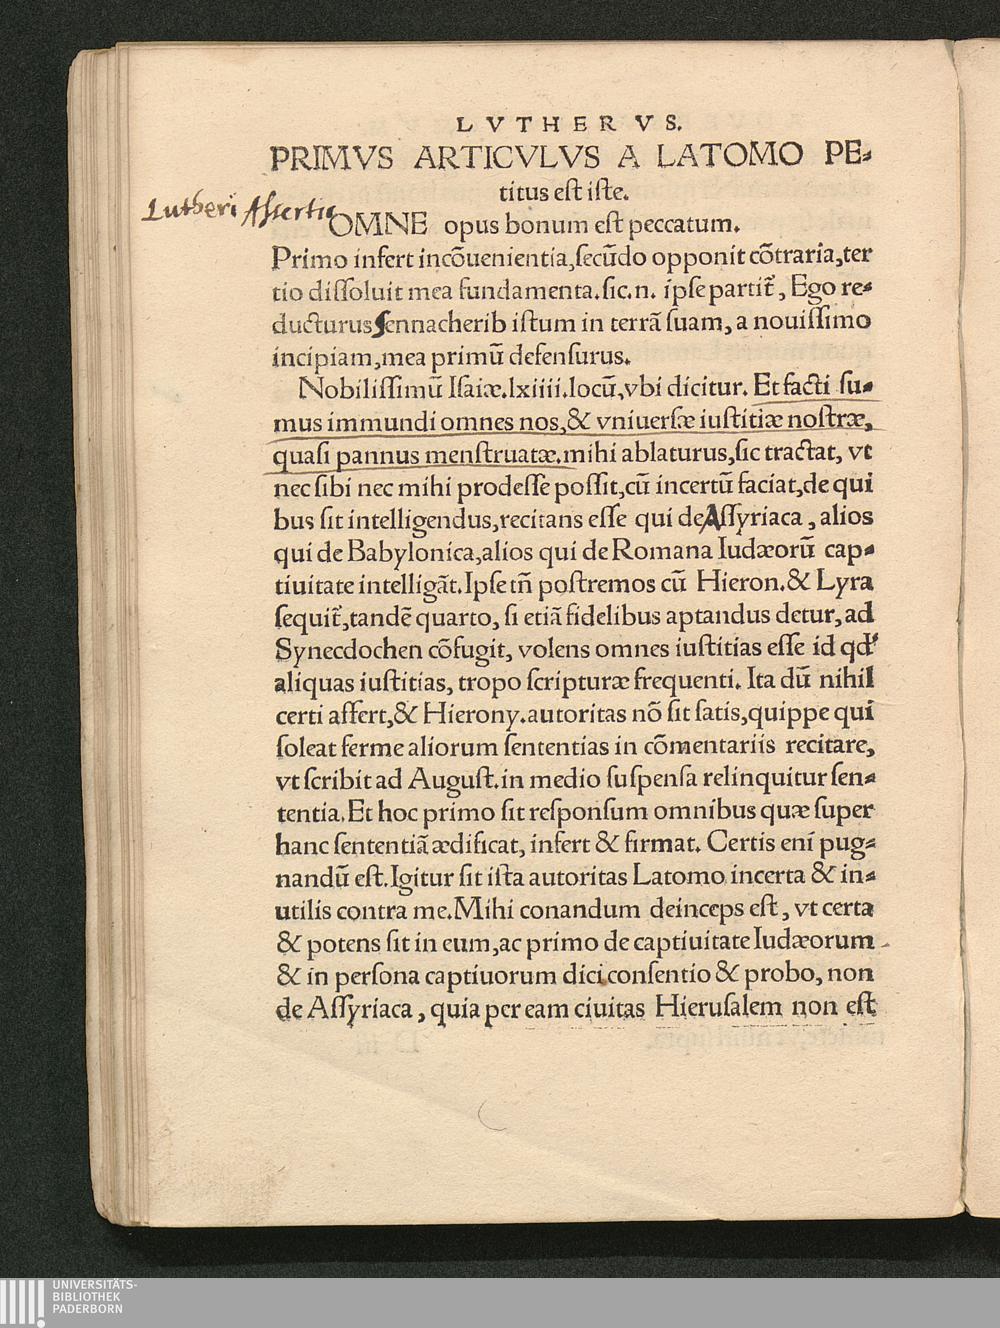 LVTHERVS.
PRIMVS ARTICVLVS A LATOMO PE-
titus est iste.
Lutheri Assertio
OMNE opus bonum est peccatum.
Primo infert incōuenientia, secūdo opponit cōtraria, ter
tio dissoluit mea fundamenta. sic. n. ipse partit̃, Ego re-
ducturus Sennacherib istum in terrã suam, a nouissimo
incipiam, mea primũ defensurus.
Nobilissimũ Isaiæ. lxiiii. locũ, vbi dicitur. Et facti su-
mus immundi omnes nos, & vniuersæ iustitiæ nostræ,
quasi pannus menstruatæ. mihi ablaturus, sic tractat, vt
nec sibi nec mihi prodesse possit, cũ incertũ faciat, de qui
bus sit intelligendus, recitans esse qui de Assyriaca, alios
qui de Babylonica, alios qui de Romana Iudæorũ cap-
tiuitate intelligãt. Ipse tñ postremos cũ Hieron. & Lyra
sequit̃, tandẽ quarto, si etiã fidelibus aptandus detur, ad
Synecdochen cõfugit, volens omnes iustitias esse id qd'
aliquas iustitias, tropo scripturæ frequenti. Ita dũ nihil
certi affert, & Hierony. autoritas nõ sit satis, quippe qui
soleat ferme aliorum sententias in cõmentariis recitare,
vt scribit ad August. in medio suspensa relinquitur sen-
tentia. Et hoc primo sit responsum omnibus quæ super
hanc sententiã ædificat, infert & firmat. Certis eni pug-
nandũ est. Igitur sit ista autoritas Latomo incerta & in-
utilis contra me. Mihi conandum deinceps est, vt certa
& potens sit in eum, ac primo de captiuitate Iudæorum
& in persona captiuorum dici consentio & probo, non
de Assyriaca, quia per eam ciuitas Hierusalem non est
UNIVERSITÄTS-
BIBLIOTHEK
PADERBORN